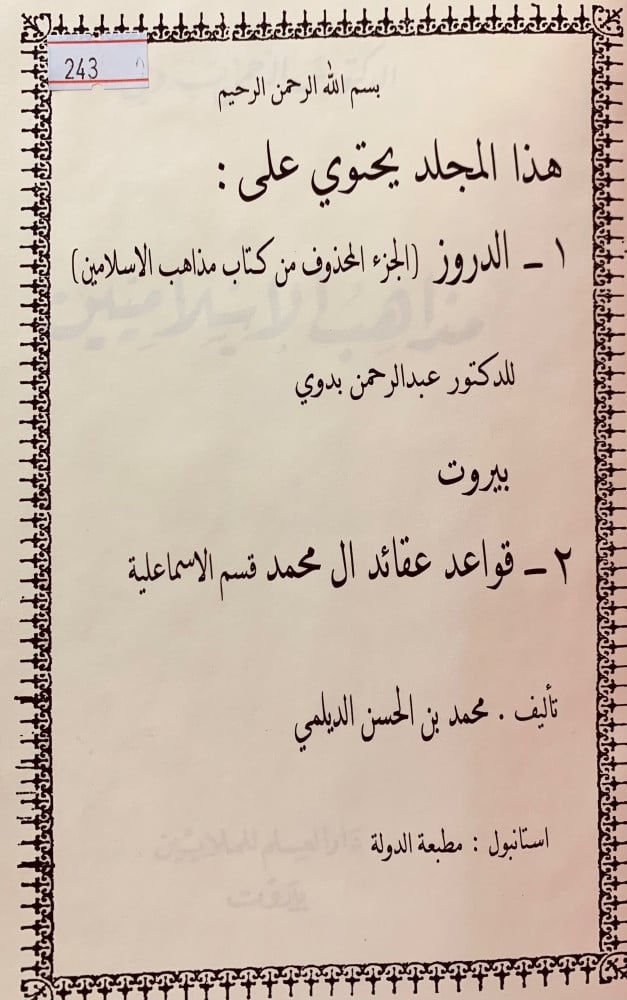 243
بسم الله الرحمن الرحيم
هذا المجلد يحتوي على :
١ ــ الدروز (الجزء المحذوف من كتاب مذاهب الاسلامين)
للدكتور عبدالرحمن بدوي
بيروت
٢ ــ قواعد عقائد ال محمد قسم الاسماعلية
تأليف . محمد بن الحسن الديلمي
استانبول : مطبعة الدولة
مذاهب الإسلاميين
دار العلم للملايين
بيروت